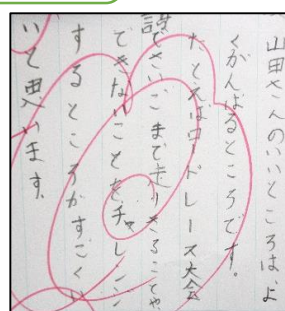 山田さんのいいところは、よ
くがんばるところです。
たとえばロードレース大会
でさいごまで走りきることや、
できないことをチャレンジ
するところがすごくい
いと思います。